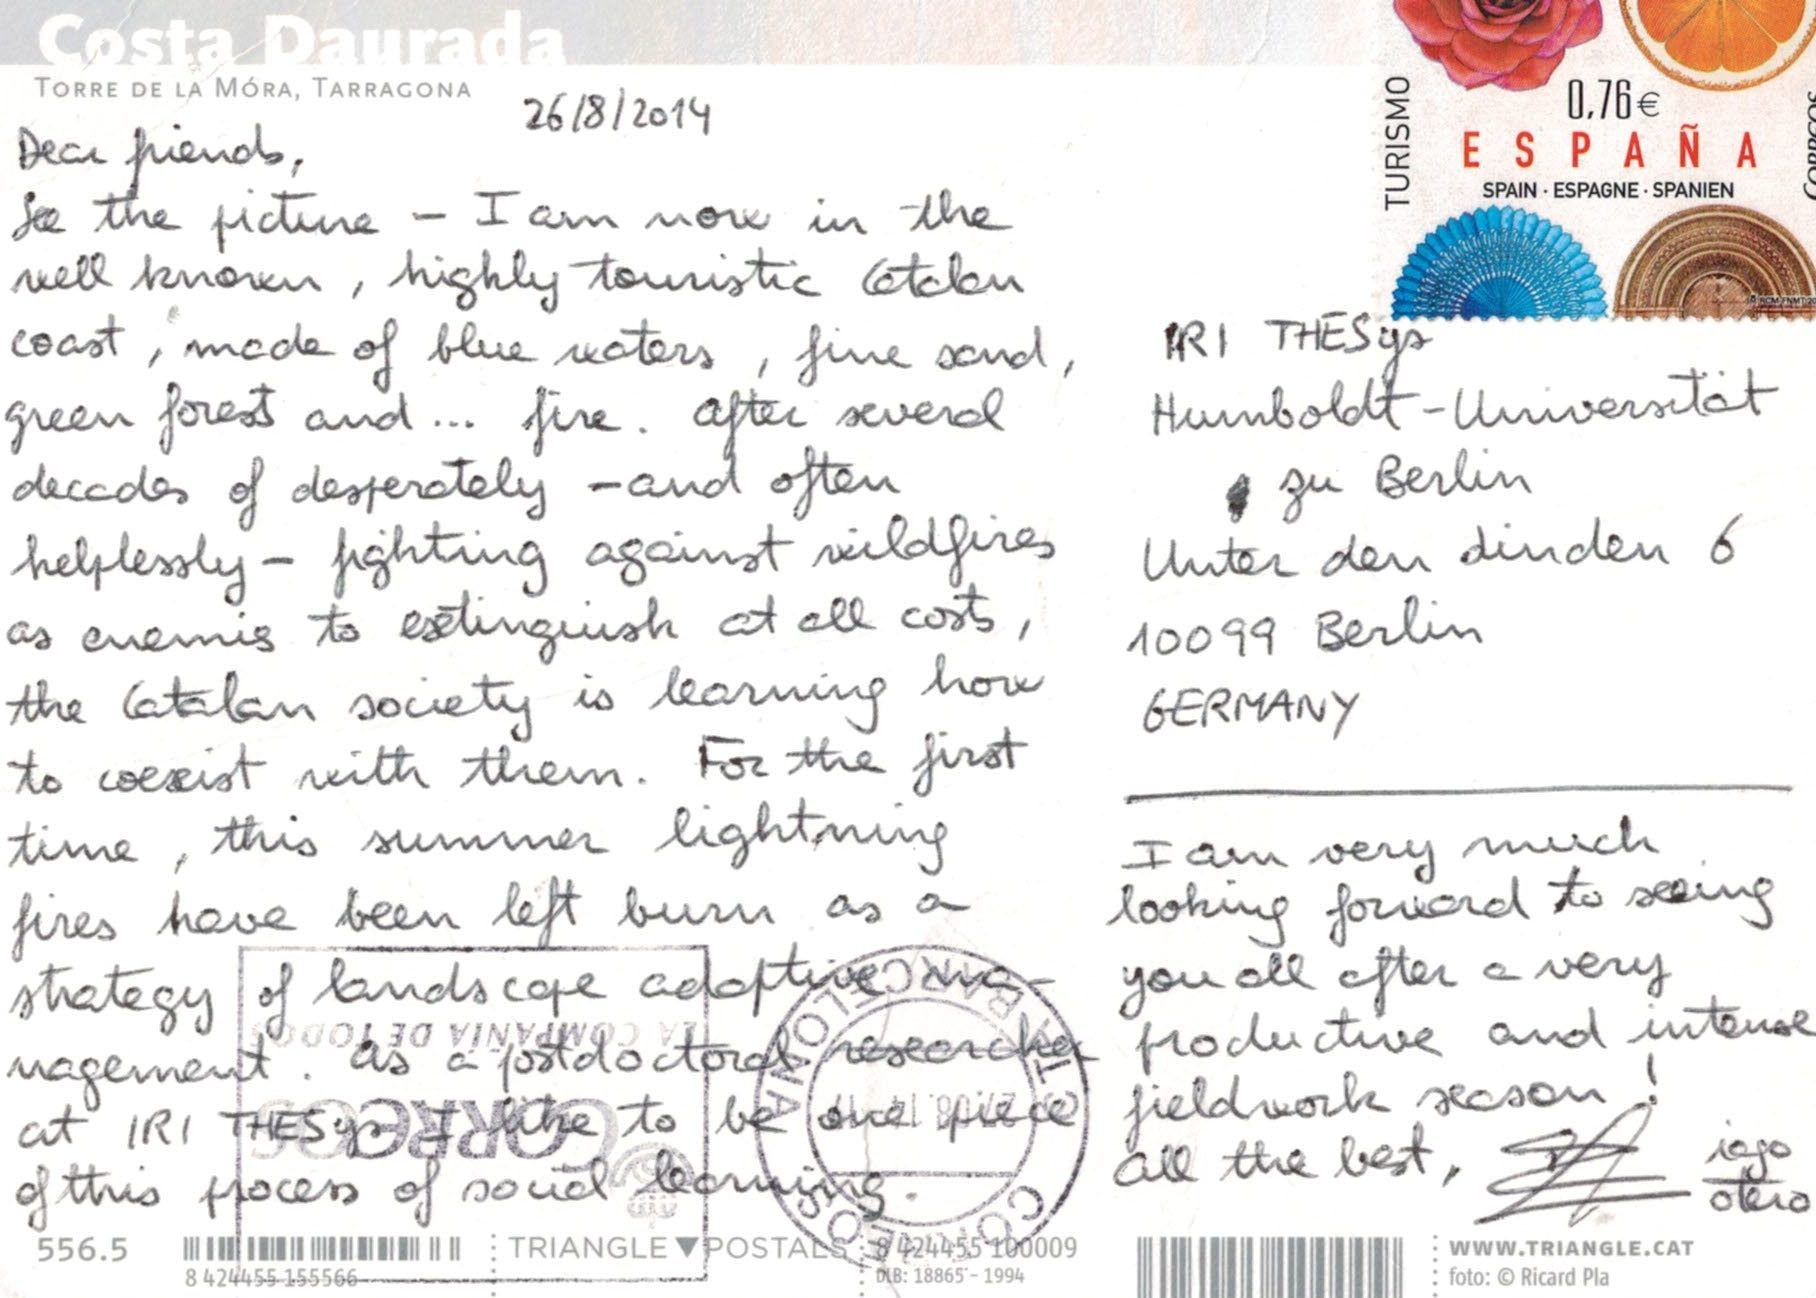 Costa Daurada
TORRE DE LA MÓRA, TARRAGONA
26/8/2014
Dear friends,
See the picture – I am now in the
well known, highly touristic Catalan
coast, made of blue waters, fine sand,
green forest and... fire. After several
decades of desperately – and often
helplessly – fighting against wildfires
as enemies to extinguish at all costs,
the Catalan society is learning how
to coexist with them. For the first
time, this summer lightning
fires have been left burn as a
strategy of landscape adaptive ma-
nagement. As a postdoctoral researcher
at IRI THESys I like to be one piece
of this process of social learning.
TURISMO
0,76€
ESPAÑA
SPAIN · ESPAGNE · SPANIEN
CORREOS
IRI THESys
Humboldt-Universität
zu Berlin
Unter den Linden 6
10099 Berlin
GERMANY
I am very much
looking forward to seeing
you all after a very
productive and intense
fieldwork season!
All the best,
iago
otero
LA COMPAÑÍA DE TODOS
CORREOS
BARCELONA
CORREOS
556.5
8 424455 155566
TRIANGLE▼POSTALS
8 424455 100009
DLB: 18865 - 1994
WWW.TRIANGLE.CAT
foto: © Ricard Pla